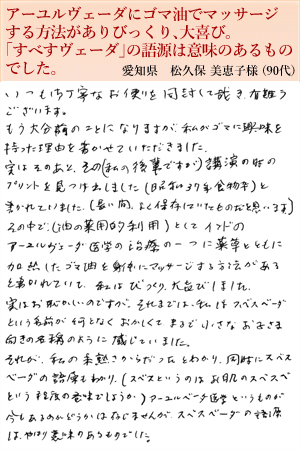 アーユルヴェーダにゴマ油でマッサージ
する方法がありびっくり、大喜び。
「すべすヴェーダ」の語源は意味のあるもの
でした。
愛知県　松久保 美恵子様（90代）
いつも御丁寧なお便りを同封して戴き、有難う
ございます。
もう大分前のことになりますが、私がゴマに興味を
持った理由を書かせていただきました。
実はそのあと、その(私の後輩ですが)講演の時の
プリントを見つけ出しました(昭和39年食物学)と
書かれていました。(長い間、よく保存していたものだと思います)
その中で、(油の薬用的利用)として インドの
アーユルヴェーダ医学の治療の一つに薬草とともに
加熱したゴマ油を身体にマッサージする方法がある
と書かれていて、私は びっくり、大喜びしました。
実はお恥かしいのですが、それまでは、私は スベスベーダ
という名前が 何となく おかしくて まるで 小さな お子さま
向きの名称のように 感じていました。
それが、私の 未熟さからだった とわかり、同時に スベス
ベーダの 語源もわかり、(スベスというのは お肌のスベスベ
という程度の意味でしょうか) アーユルベーダ医学というものが
今もあるのかどうかは 存じませんが、スベスベーダの 語源
は、やはり 意味のあるものでした。